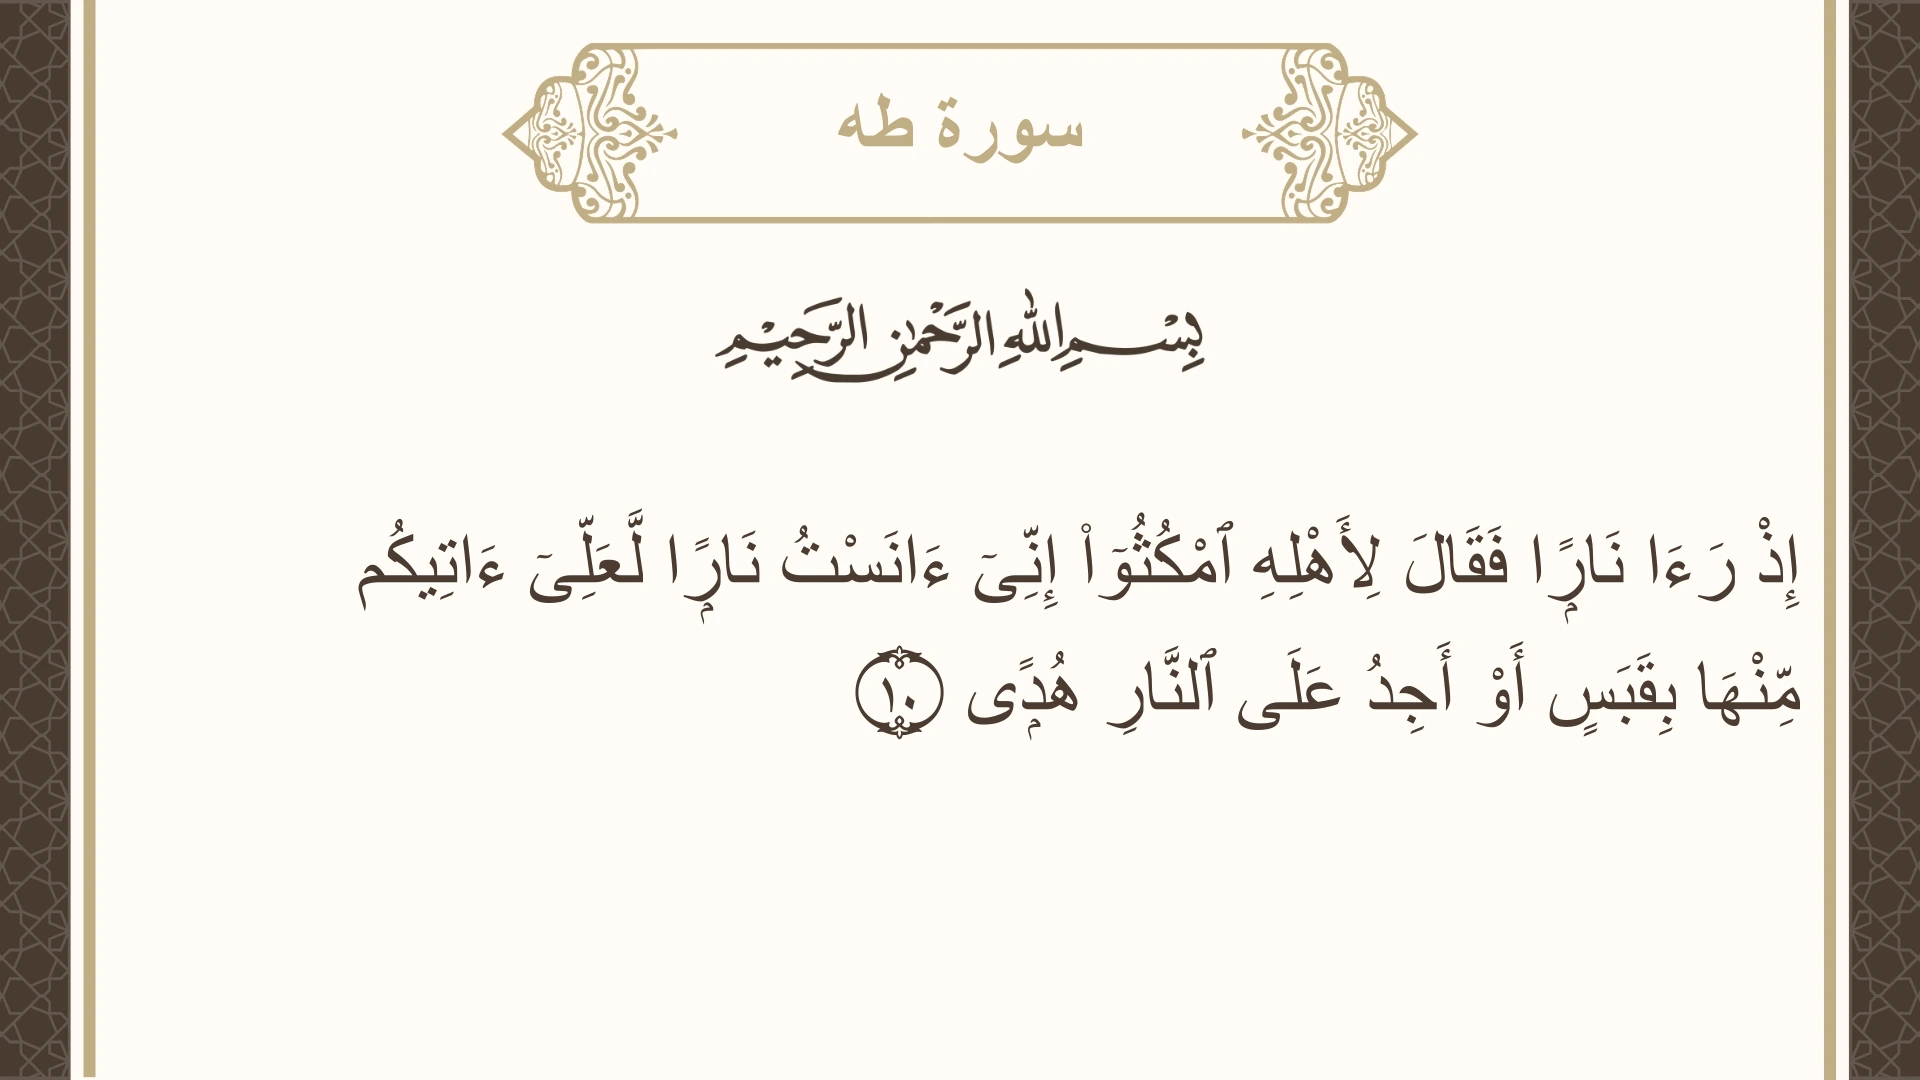 سورة طه
بِسْمِ اللهِ الرَّحْمٰنِ الرَّحِيْمِ
إِذْ رَءَا نَارًۭا فَقَالَ لِأَهْلِهِ ٱمْكُثُوٓا۟ إِنِّىٓ ءَانَسْتُ نَارًۭا لَّعَلِّىٓ ءَاتِيكُم
مِّنْهَا بِقَبَسٍ أَوْ أَجِدُ عَلَى ٱلنَّارِ هُدًۭى ١٠